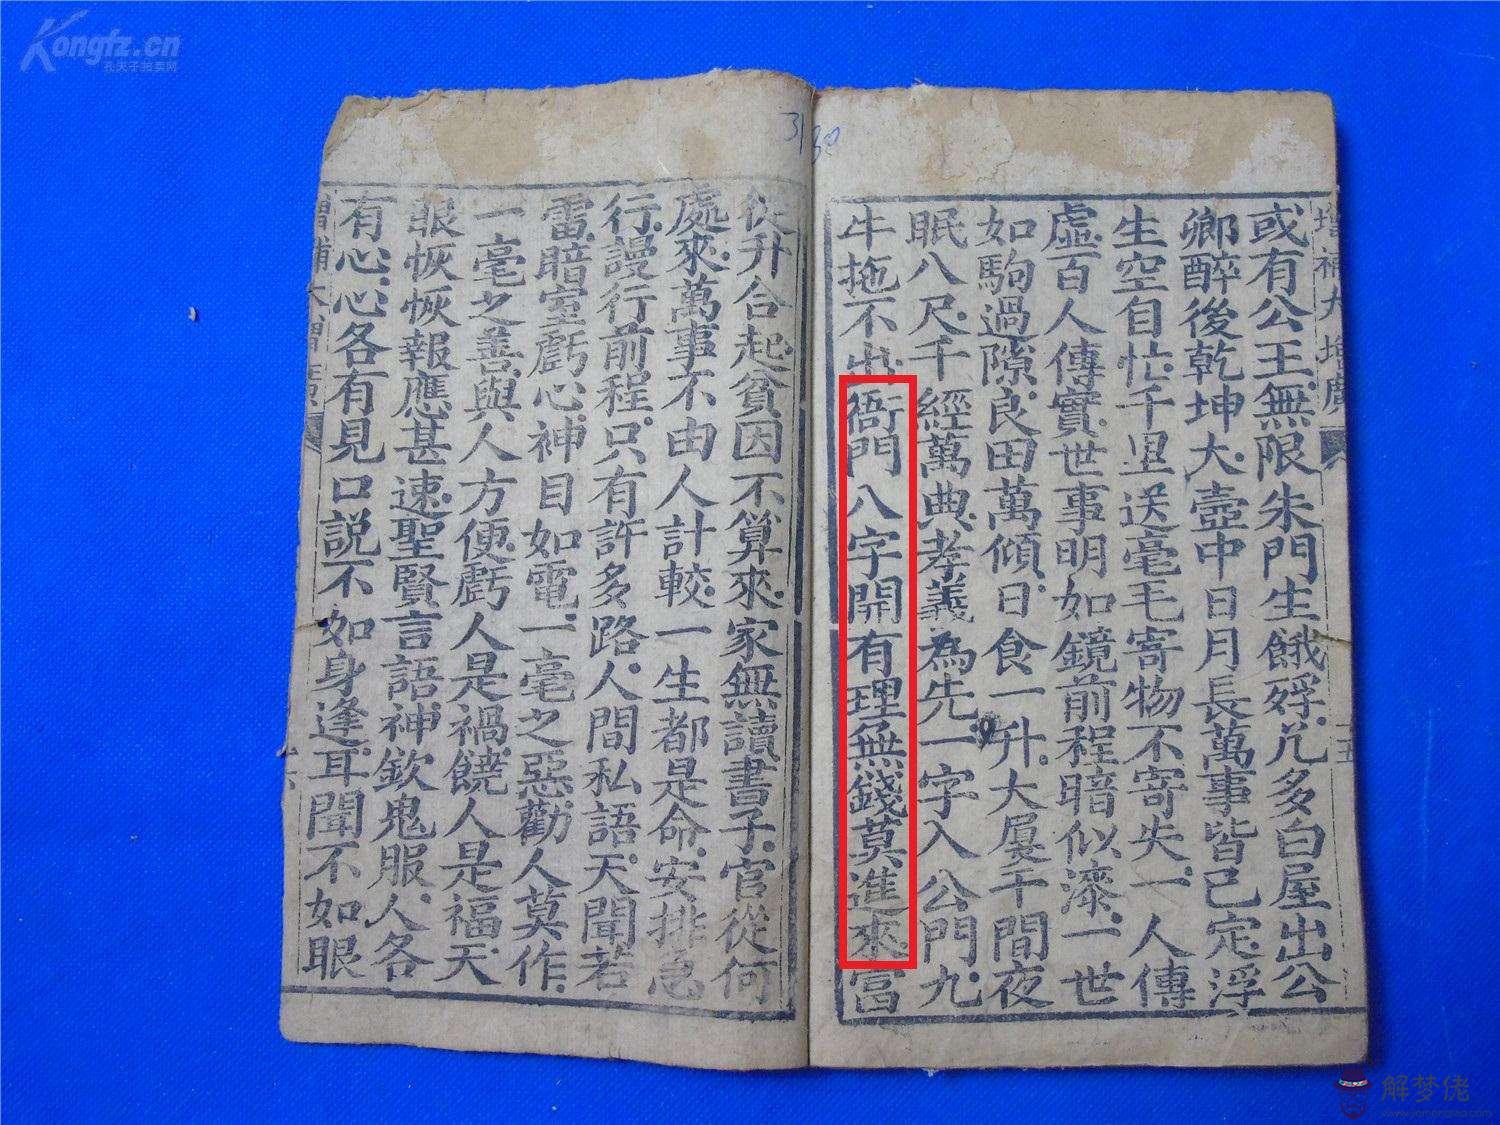 Kongfz.cn
孔夫子拍卖网
31
30
增補大增廣
十五
或有公王無限朱門生餓殍.凢多白屋出公
卿醉後乾坤大.壺中日月長萬事皆已定.浮
生空自忙.千里送毫毛寄物不寄失.一人傳
虛.百人傳實.世事明如鏡前程暗似漆.一世
如駒過隙.良田萬傾.日食一升.大厦千間夜
眠八尺.千經萬典.孝義為先.一字入公門.九
牛拖不出衙門八字開有理無錢莫進來.富
從升合起貧因不算來.家無讀書子.官從何
處來.萬事不由人計較.一生都是命.安排急
行.謾行前程.只有許多路.人間私語.天聞若
雷.暗室虧心.神目如電.一毫之惡.勸人莫作.
一毫之善.與人方便.虧人是禍.饒人是福.天
眼恢恢報應甚速.聖賢言語.神欽鬼服.人各
有心.心各有見口説不如身逢.耳聞不如眼
增補大增廣
十六
解梦佬